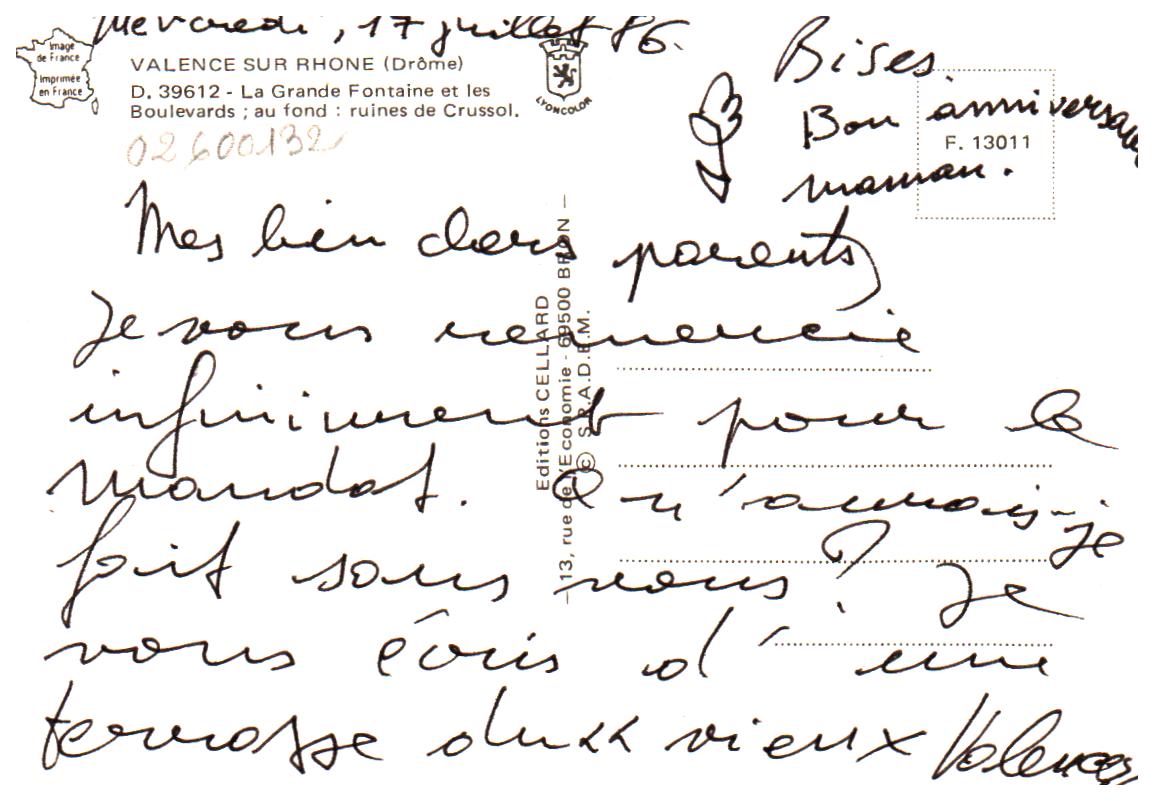 Mercredi, 17 juillet 86.
Image
de France
Imprimée
en France
VALENCE SUR RHONE (Drôme)
D. 39612 - La Grande Fontaine et les
Boulevards ; au fond : ruines de Crussol.
LYONCOLOR
02600132
Bises.
Bon anniversaire
maman.
F. 13011
Mes bien chers parents,
Je vous remercie
infiniment pour le
mandat. Qu'aurais-je
fait sans vous ? Je
vous écris d'une
terrasse du « vieux Valence »
Editions CELLARD
13, rue de l'Economie - 69500 BRON
© S.P.A.D.E.M.